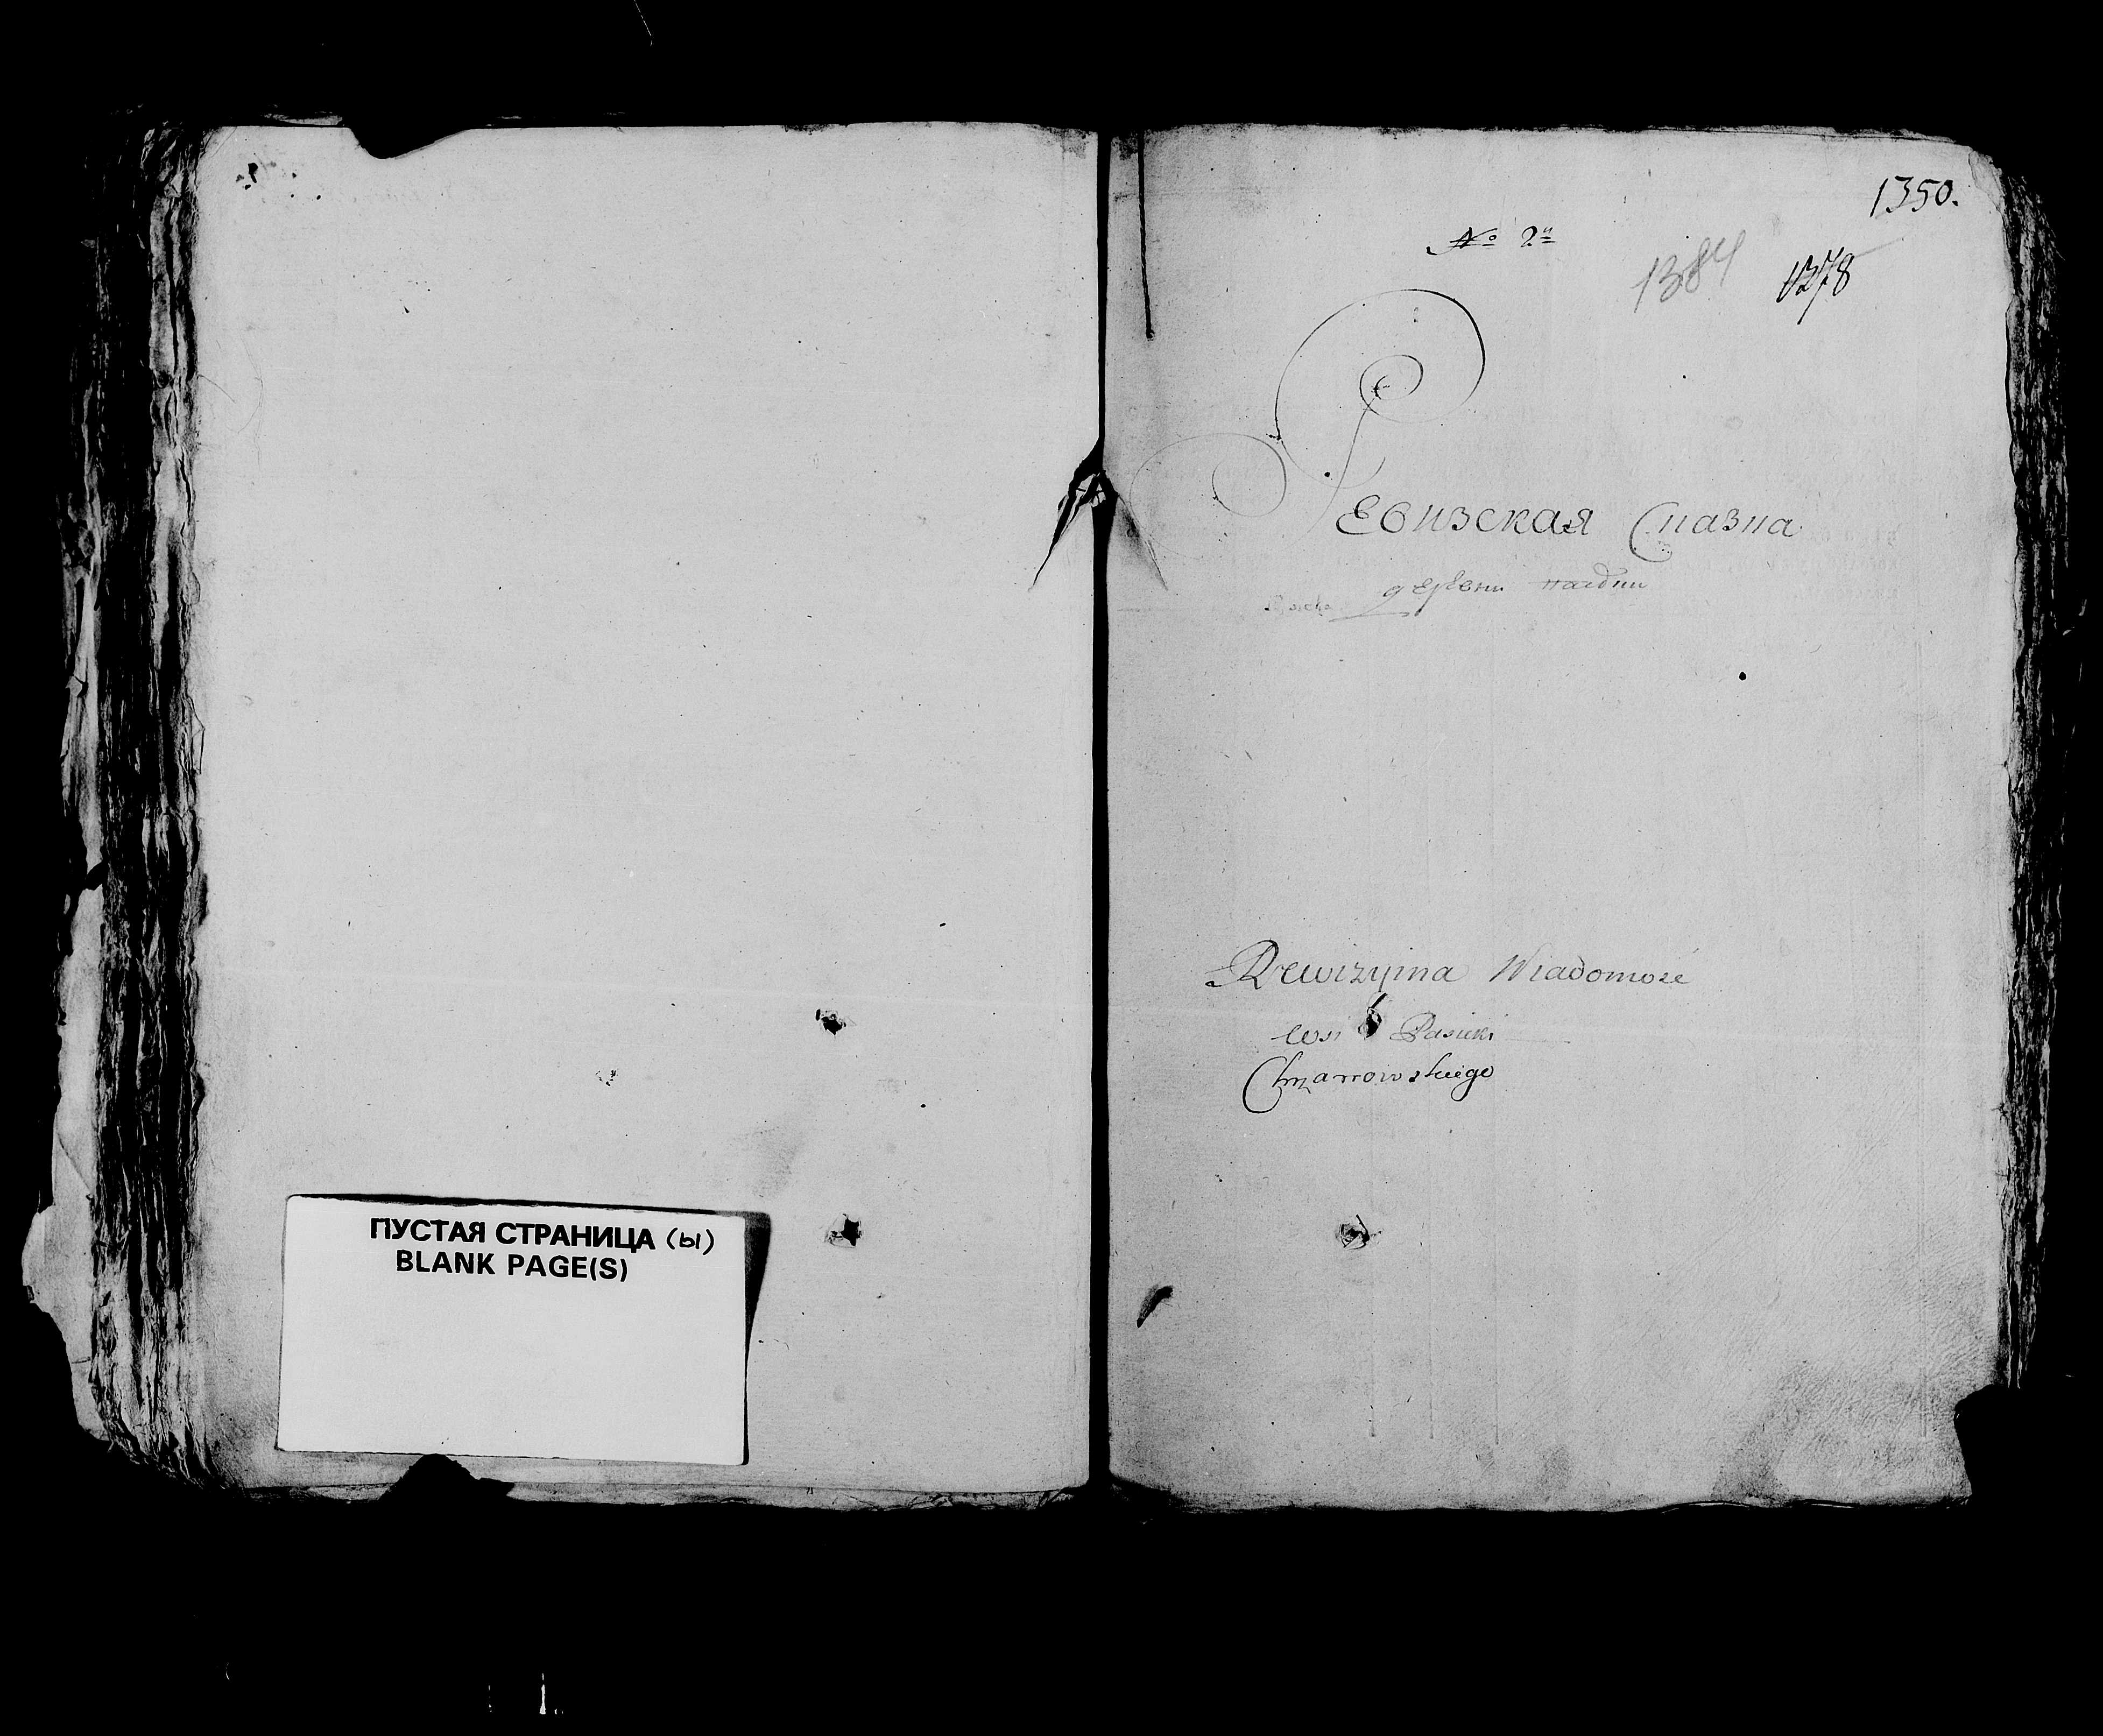 ПУСТАЯ СТРАНИЦА (ы)
BLANK PAGE(S)
1350.
№ 2й
1384 1278
Ревизская Сказка
деревни
Rewizyina Wiadomość
wsi Pasieki